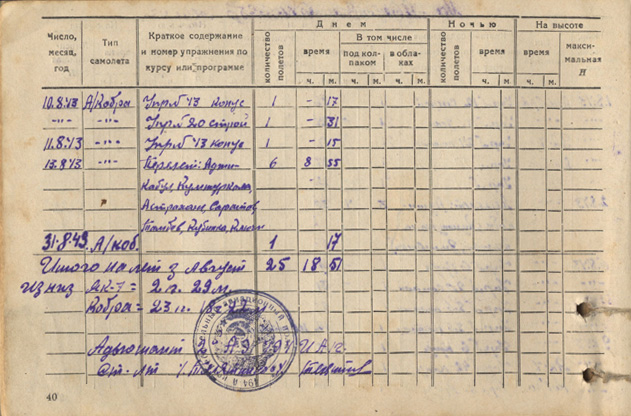 Днем
Ночью
На высоте
Число, месяц, год
Тип самолета
Краткое содержание и номер упражнения по курсу или программе
количество полетов
время
В том числе
под колпаком
в облаках
количество полетов
время
время
максимальная H
ч. м. ч. м. ч. м. ч. м. ч. м.
10.8.43 А/Кобра Упр.№ 43 конус 1 - 17
-"- -"- Упр.№ 20 строй 1 - 31
11.8.43 -"- Упр.№ 43 конус 1 - 15
13.8.43 -"- Перелет: Аджи- 6 8 55
Кабул, Кумторкала,
Астрахань, Саратов
Тамбов, Кубинка,
31.8.43 А/коб. 1 17
Итого налет з Август 25 18 51
из низ Як-7 = 2 п. 29 м.
Кобра = 23 п.
Адъютант
Ст. л-т
40